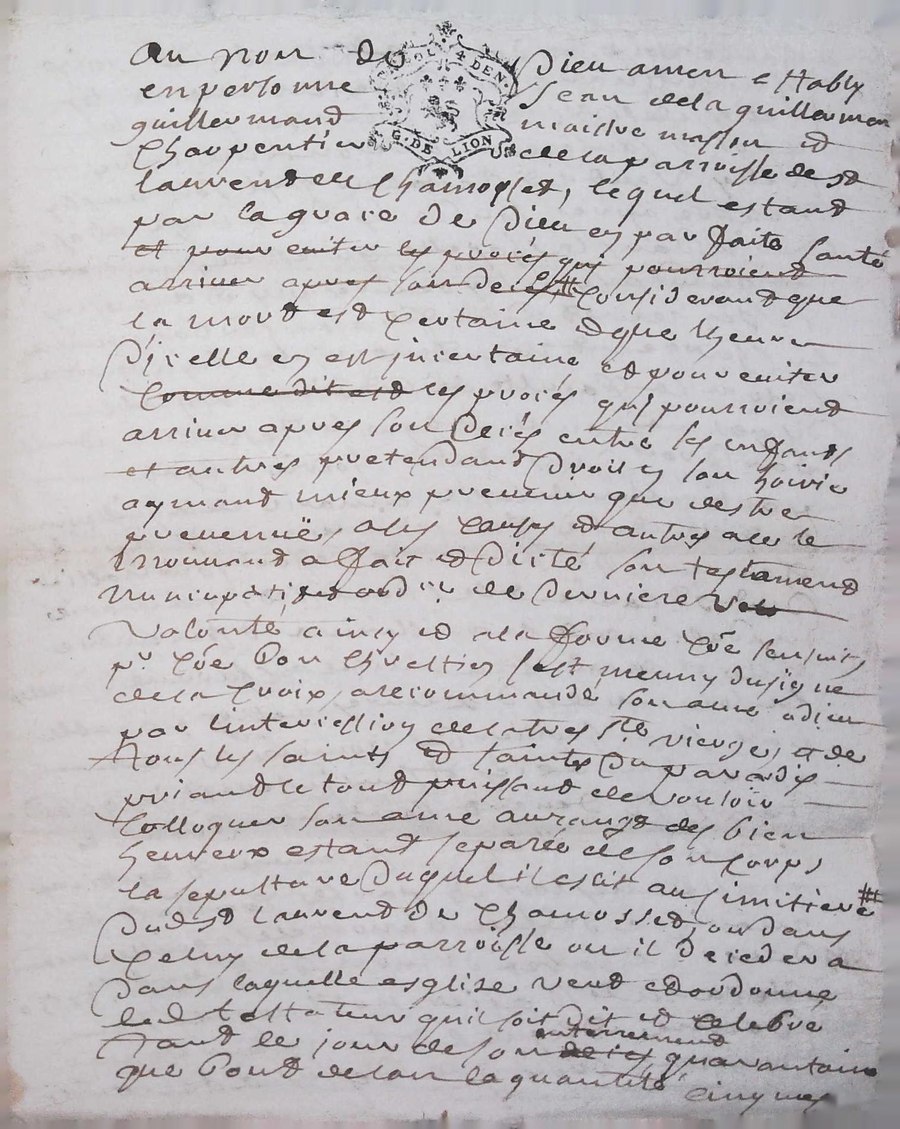 au nom de Dieu amen estably
en personne Jean dela guillerman
guillermand maistre masson et
Charpentier dela parroisse de st
laurend de Chamosset, lequel estand
par la grace de Dieu en parfaite santé
et pour eviter les procés qui pourroiend
arriver apres son de considerand que
la mord est certaine et que lheure
Dicelle en est incertaine et pour eviter
comme dit est les procés qui pourroiend
arriver apres son decés entre ses enfants
et autres pretendand droit en son hoirie
aymand mieux prevenir que destre
prevenu, a ces causes et autres a ce le
mouvand a fait et dicté son testamend
nuncupatif et ordre de derniere volo
Volonté ainsy et a la forme cÿe
pr cÿe bon chrestien sest muny du signe
dela Croix, a recommandé son ame a dieu
par lintercession dela tres ste vierge, et de
tous les saints et saintes du paradix
priand le toud puissand de vouloir
Colloquer son ame au rangt des bien
heureux estand separée de son corps
la sepulture duquel il esait au simitiere #
Dudst lauvend de Chamossed, ou dans
Celuy dela parroisse ou il decedera
Dans laquelle esglise veud et ordonne
led testateur qui soit dit et celebré
enterremend
tand le jour de son deces quarantaine
que boud delan la quantité cinq mes
G. DE LION